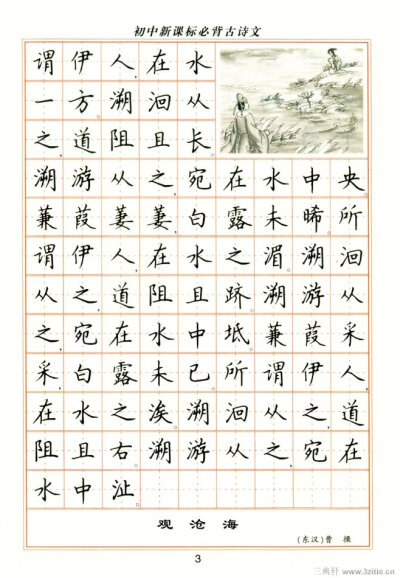 初中新课标必背古诗文
谓伊人,在水
一方。溯洄从
之,道阻且长。
溯游从之,宛在水中央。
蒹葭萋萋,白露未晞。所
谓伊人,在水之湄。溯洄
从之,道阻且跻。溯游从
之,宛在水中坻。蒹葭采
采,白露未已。所谓伊人,
在水之涘。溯洄从之,道
阻且右。溯游从之,宛在
水中沚。
观沧海
(东汉)曹操
3
三典轩 www.3zitie.cn